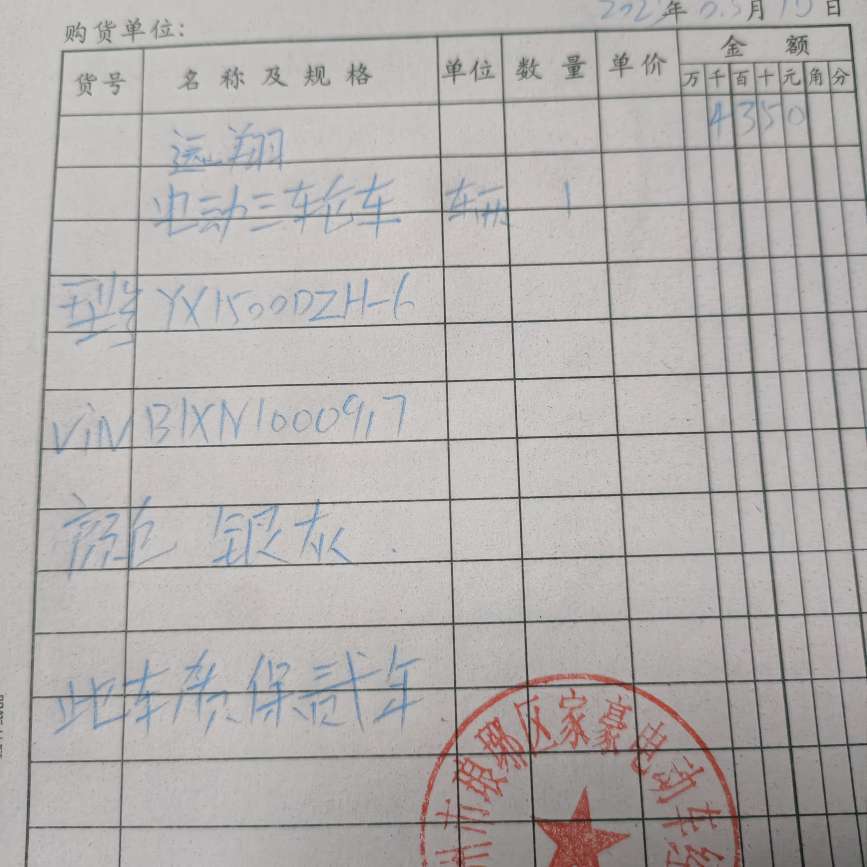 购货单位:
年 月 日
货号 名称及规格 单位 数量 单价 金额
万 千 百 十 元 角 分
远翔 4350
电动三轮车 辆 1
型号 YX1500DZH-6
ViN B1XN1000917
颜色 银灰
此车质保贰年
州市琅琊区家豪电动车经